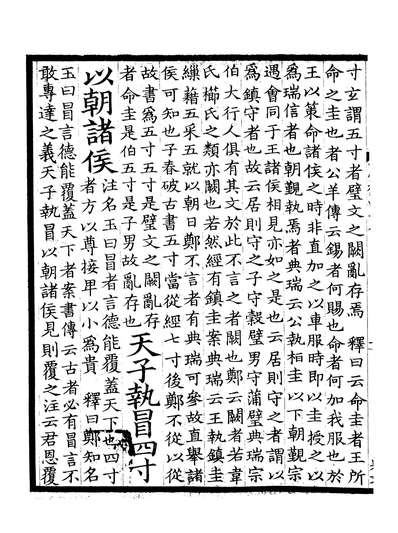 寸玄謂五寸者璧文之闕亂存焉　釋曰云命圭者王所
命之圭也者公羊傳云錫者何賜也命者何加我服也於
王以策命諸侯之時非直加之以車服時即以圭授之以
爲瑞信者也朝覲執焉者典瑞云公執桓圭以下朝覲宗
遇會同于王諸侯相見亦如之是也云居則守之者謂以
爲鎮守者也故云居則守之子守穀璧男守蒲璧典瑞宗
伯大行人俱有其文於此不言之者闕也鄭云闕者若韋
氏櫛氏之類亦闕也若然經有鎮圭案典瑞云王執鎮圭
繅藉五采五就以朝日鄭不言者有典瑞可參故直舉諸
侯可知也子春破古書五寸當從經七寸後鄭不從以從
故書爲五寸五寸是璧文之闕亂存
者命圭是伯五寸是子男故亂存也
天子執冒四寸
以朝諸侯
注名玉曰冒者言德能覆蓋天下也四寸
者方以尊接卑以小爲貴　釋曰鄭知名
玉曰冒言德能覆蓋天下者案書傳云古者必有冒言不
敢專達之義天子執冒以朝諸侯見則覆之注云君恩覆